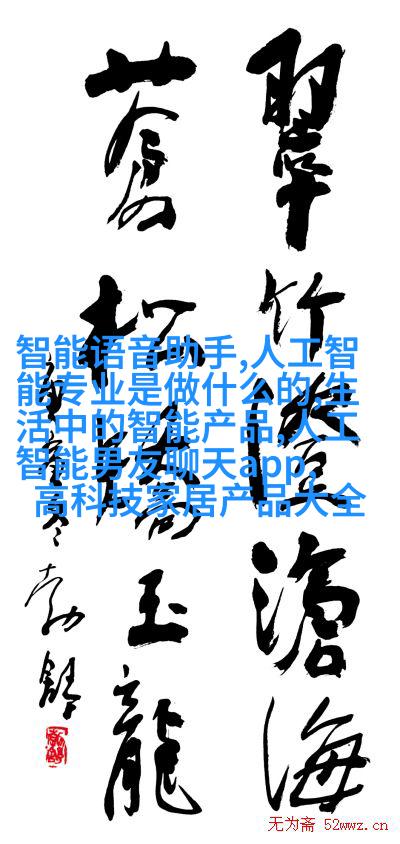 翠竹滄海
蒼松玉龍
智能语音助手,人工智
能专业是做什么的,生
活中的智能产品,人工
智能男友聊天app,
高科技家居产品大全
无为斋 52wwz.cn